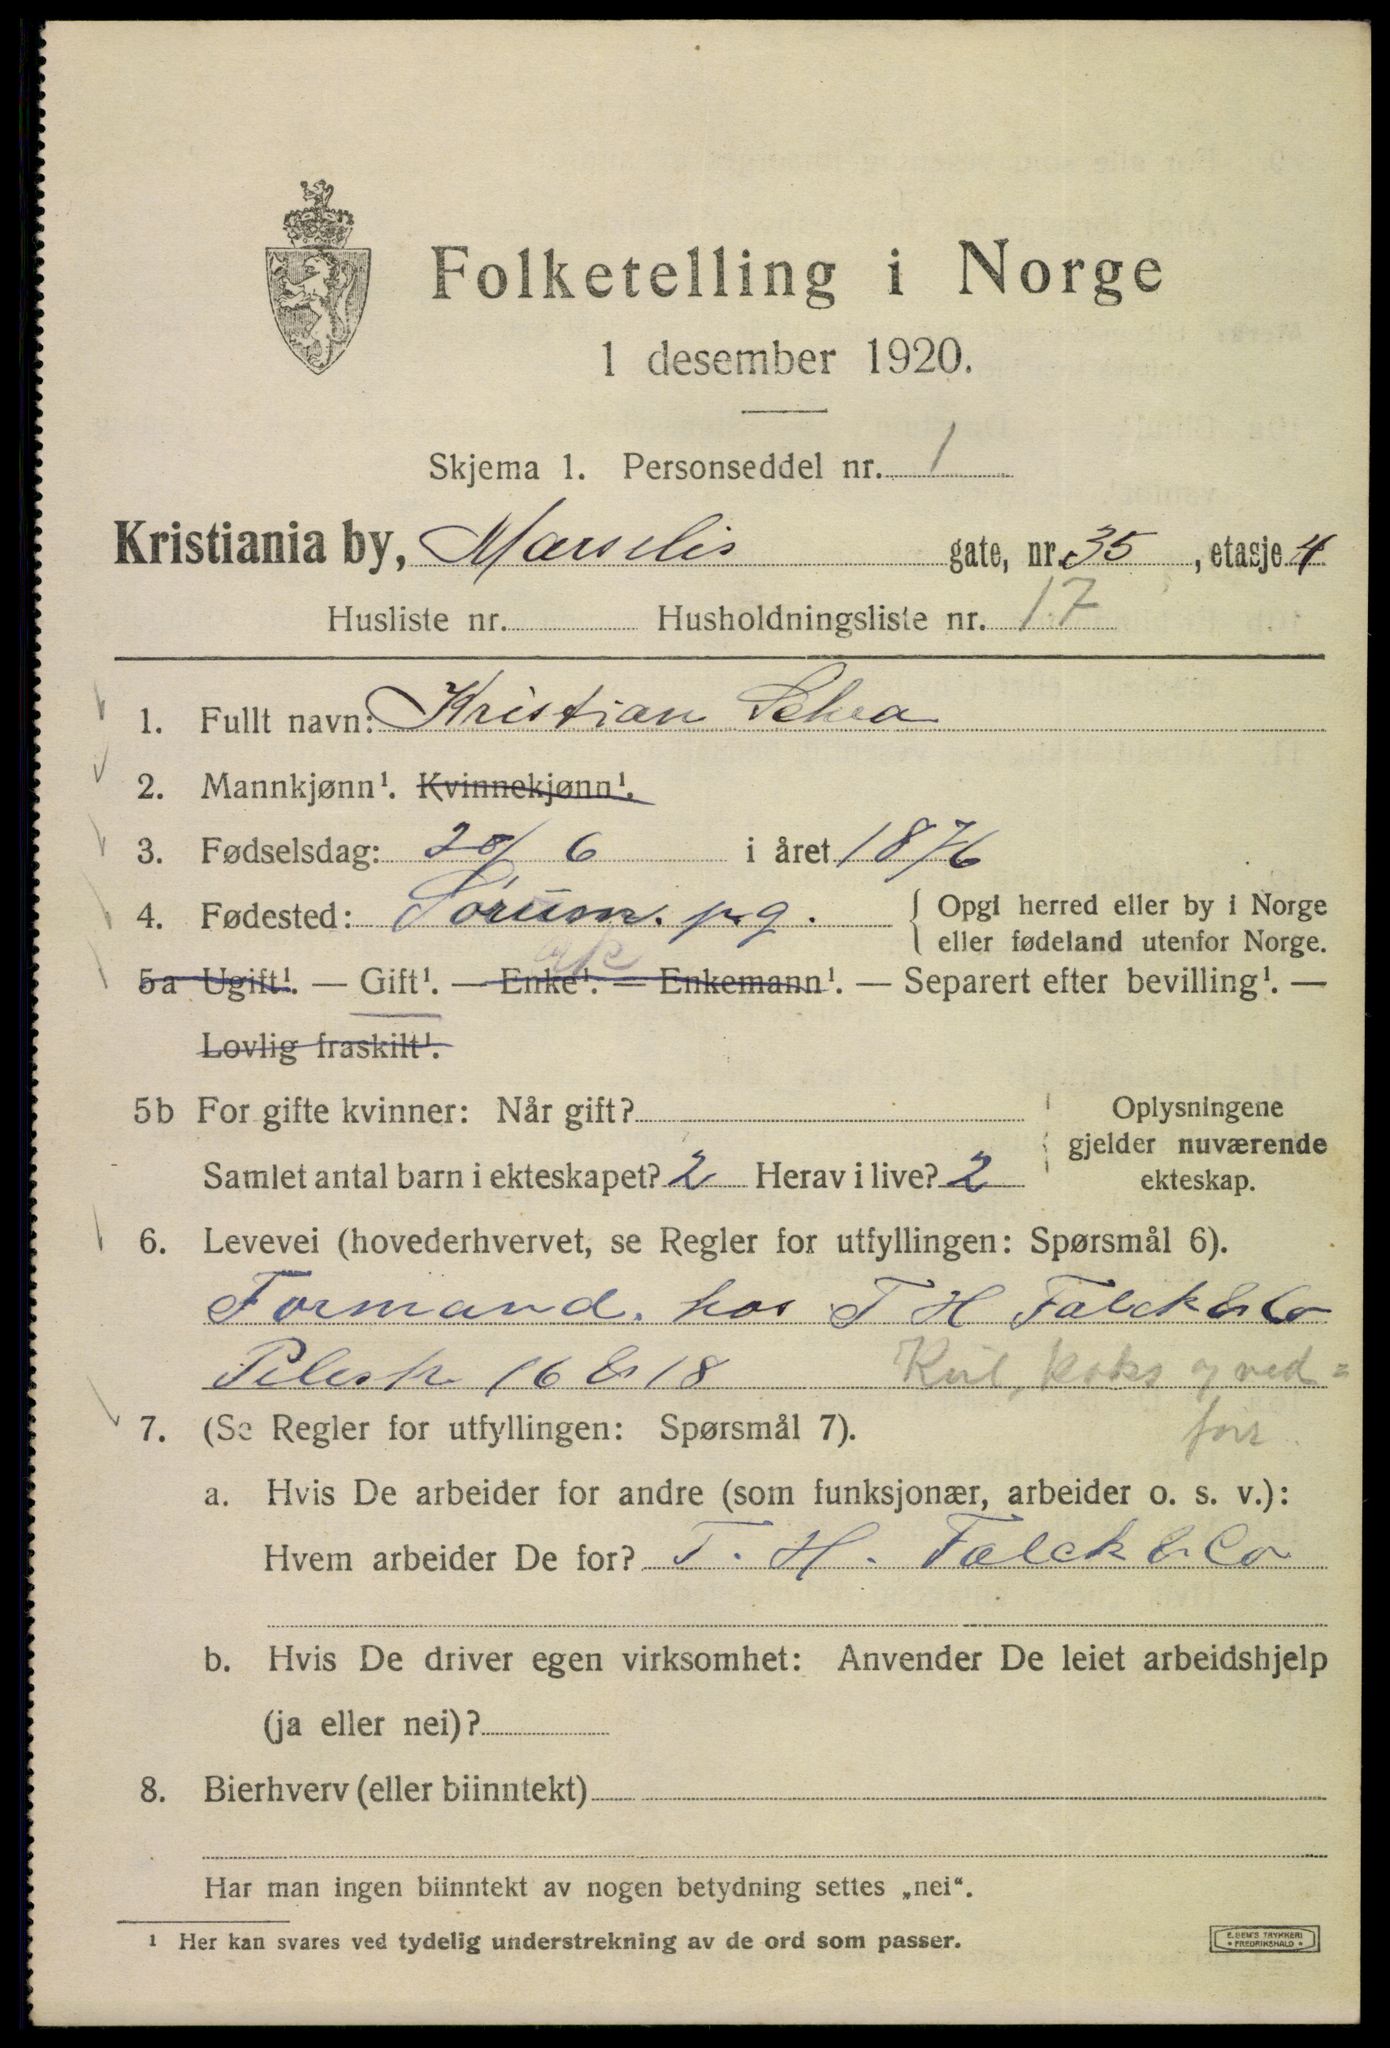 Folketelling i Norge
1 desember 1920.
Skjema 1. Personseddel nr. 1
Kristiania by, Marselis gate, nr. 35, etasje 4
Husliste nr. Husholdningsliste nr. 17
1. Fullt navn: Kristian Schea
2. Mannkjønn¹. Kvinnekjønn¹.
3. Fødselsdag: 20/6 i året 1876
4. Fødested: Sørum. p.g. { Opgi herred eller by i Norge
eller fødeland utenfor Norge.
ak
5a Ugift¹. — Gift¹. — Enke¹. — Enkemann¹. — Separert efter bevilling¹. —
Lovlig fraskilt¹.
5b For gifte kvinner: Når gift? Oplysningene
gjelder nuværende
Samlet antal barn i ekteskapet? 2 Herav i live? 2 ekteskap.
6. Levevei (hovederhvervet, se Regler for utfyllingen: Spørsmål 6).
Formand. hos T H Falck & Co
Pilestr 16 & 18 Kul, koks og ved=
forr
7. (Se Regler for utfyllingen: Spørsmål 7).
a. Hvis De arbeider for andre (som funksjonær, arbeider o. s. v.):
Hvem arbeider De for? T. H. Falck & Co
b. Hvis De driver egen virksomhet: Anvender De leiet arbeidshjelp
(ja eller nei)?
8. Bierhverv (eller biinntekt)
Har man ingen biinntekt av nogen betydning settes „nei“.
¹ Her kan svares ved tydelig understrekning av de ord som passer.
E. SEM'S TRYKKERI
• FREDRIKSHALD •